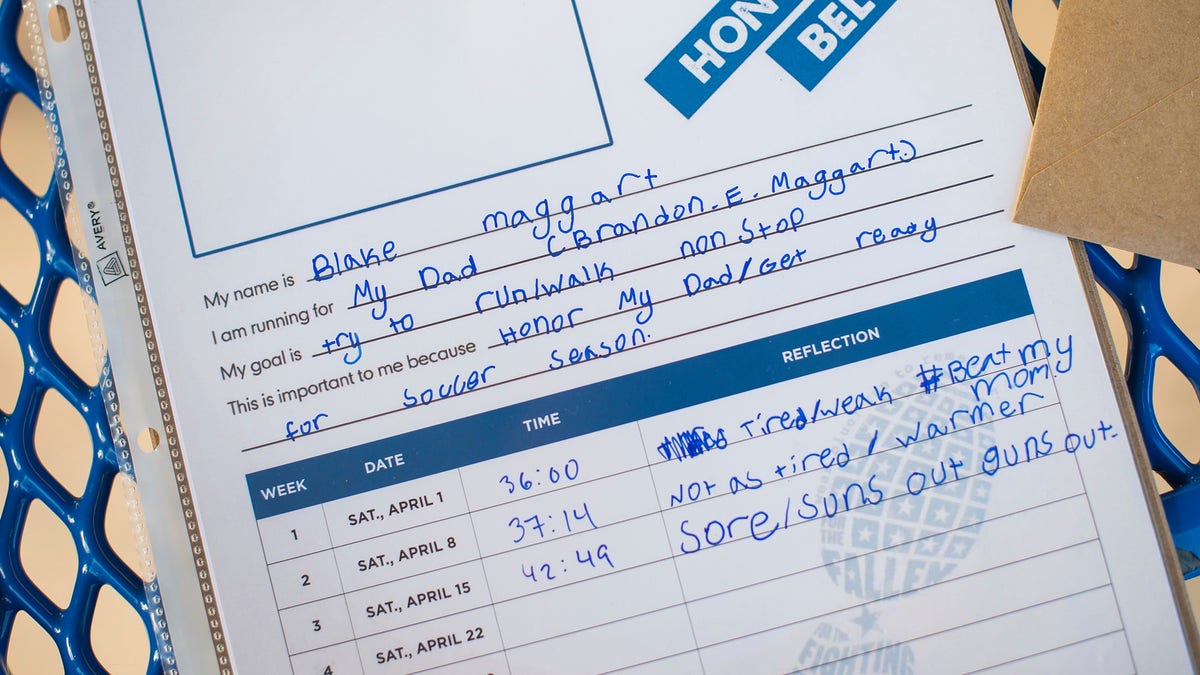 HON
BEL
AVERY®
My name is Blake maggart
I am running for My Dad (Brandon. E. Maggart.)
My goal is try to run/walk non stop
This is important to me because Honor My Dad/Get ready
for soccer season.
WEEK DATE TIME REFLECTION
1 SAT., APRIL 1 36:00 Tired/weak #Beat my mom!
2 SAT., APRIL 8 37:14 Not as tired / warmer
3 SAT., APRIL 15 42:49 Sore/suns out guns out.
4 SAT., APRIL 22
THE
FALLEN
FOR THE
FIGHTING